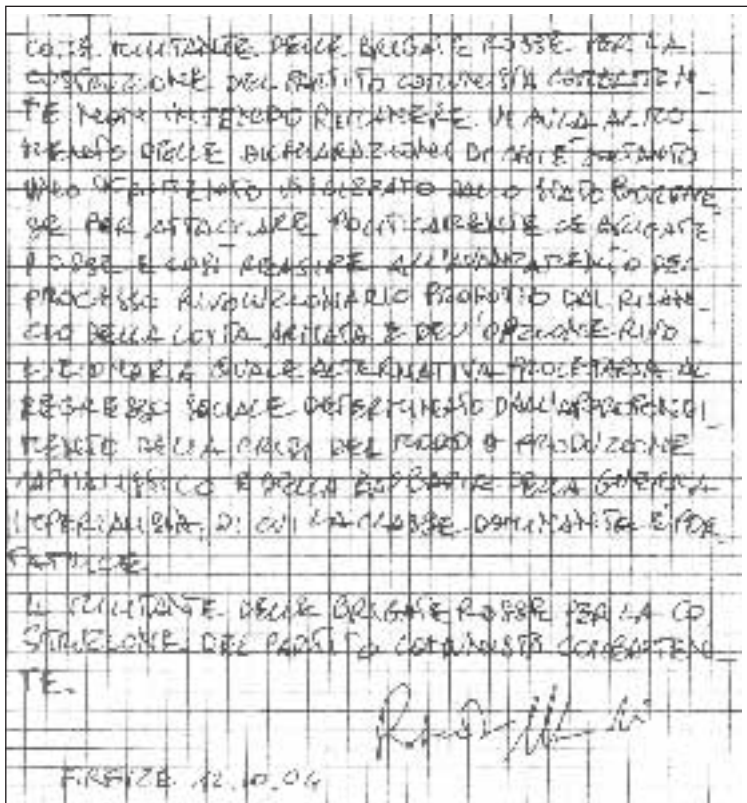 MILITANTE DELLE BRIGATE ROSSE PER LA
COSTRUZIONE DEL PARTITO COMUNISTA COMBATTEN
TE NON INTENDO RIMANERE IN AULA AL MO
MENTO DELLE DICHIARAZIONI DI
UNO STRUMENTO DALLO STATO BORGHE
SE PER ATTACCARE POLITICAMENTE LE BRIGATE
ROSSE E COSÌ REAGIRE ALL'AVANZAMENTO DEL
PROCESSO RIVOLUZIONARIO PROMOSSO DAL RILAN_
CIO DELLA LOTTA ARMATA E DELL'OPZIONE RIVO_
LUZIONARIA QUALE ALTERNATIVA PROLETARIA AL
REGRESSO SOCIALE DETERMINATO DALL'APPROFONDI_
MENTO DELLA CRISI DEL MODO DI PRODUZIONE
CAPITALISTICO E DELLA BARBARIE DELLA GUERRA
IMPERIALISTA, DI CUI LA CLASSE DOMINANTE È POR_
TATRICE.
IL MILITANTE DELLE BRIGATE ROSSE PER LA CO
STRUZIONE DEL PARTITO COMUNISTA COMBATTEN_
TE.
FIRENZE 12.10.04